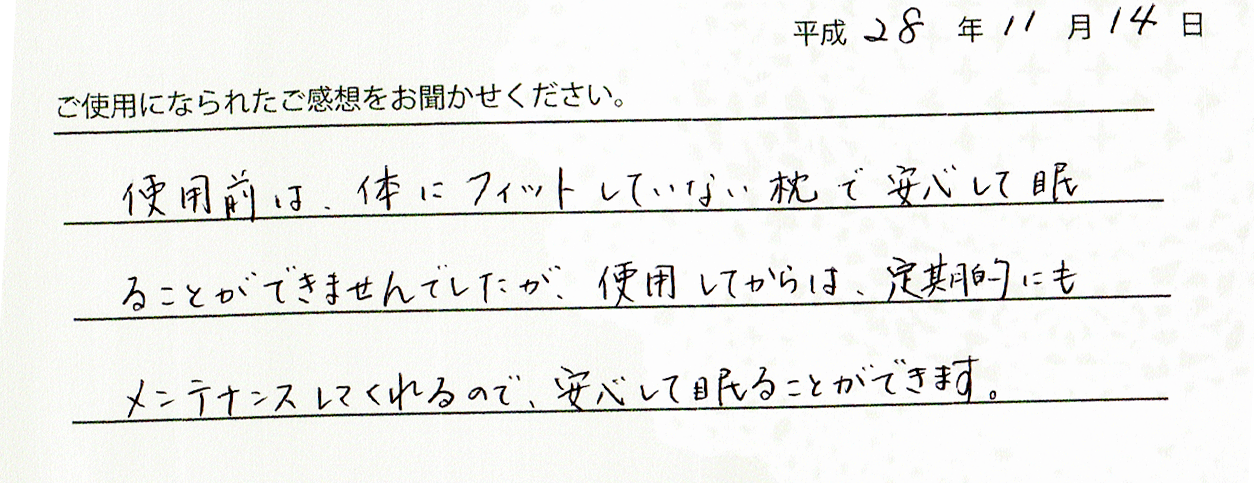 平成 28 年 11 月 14 日
ご使用になられたご感想をお聞かせください。
使用前は、体にフィットしていない枕で安心して眠
ることができませんでしたが、使用してからは、定期的にも
メンテナンスしてくれるので、安心して眠ることができます。